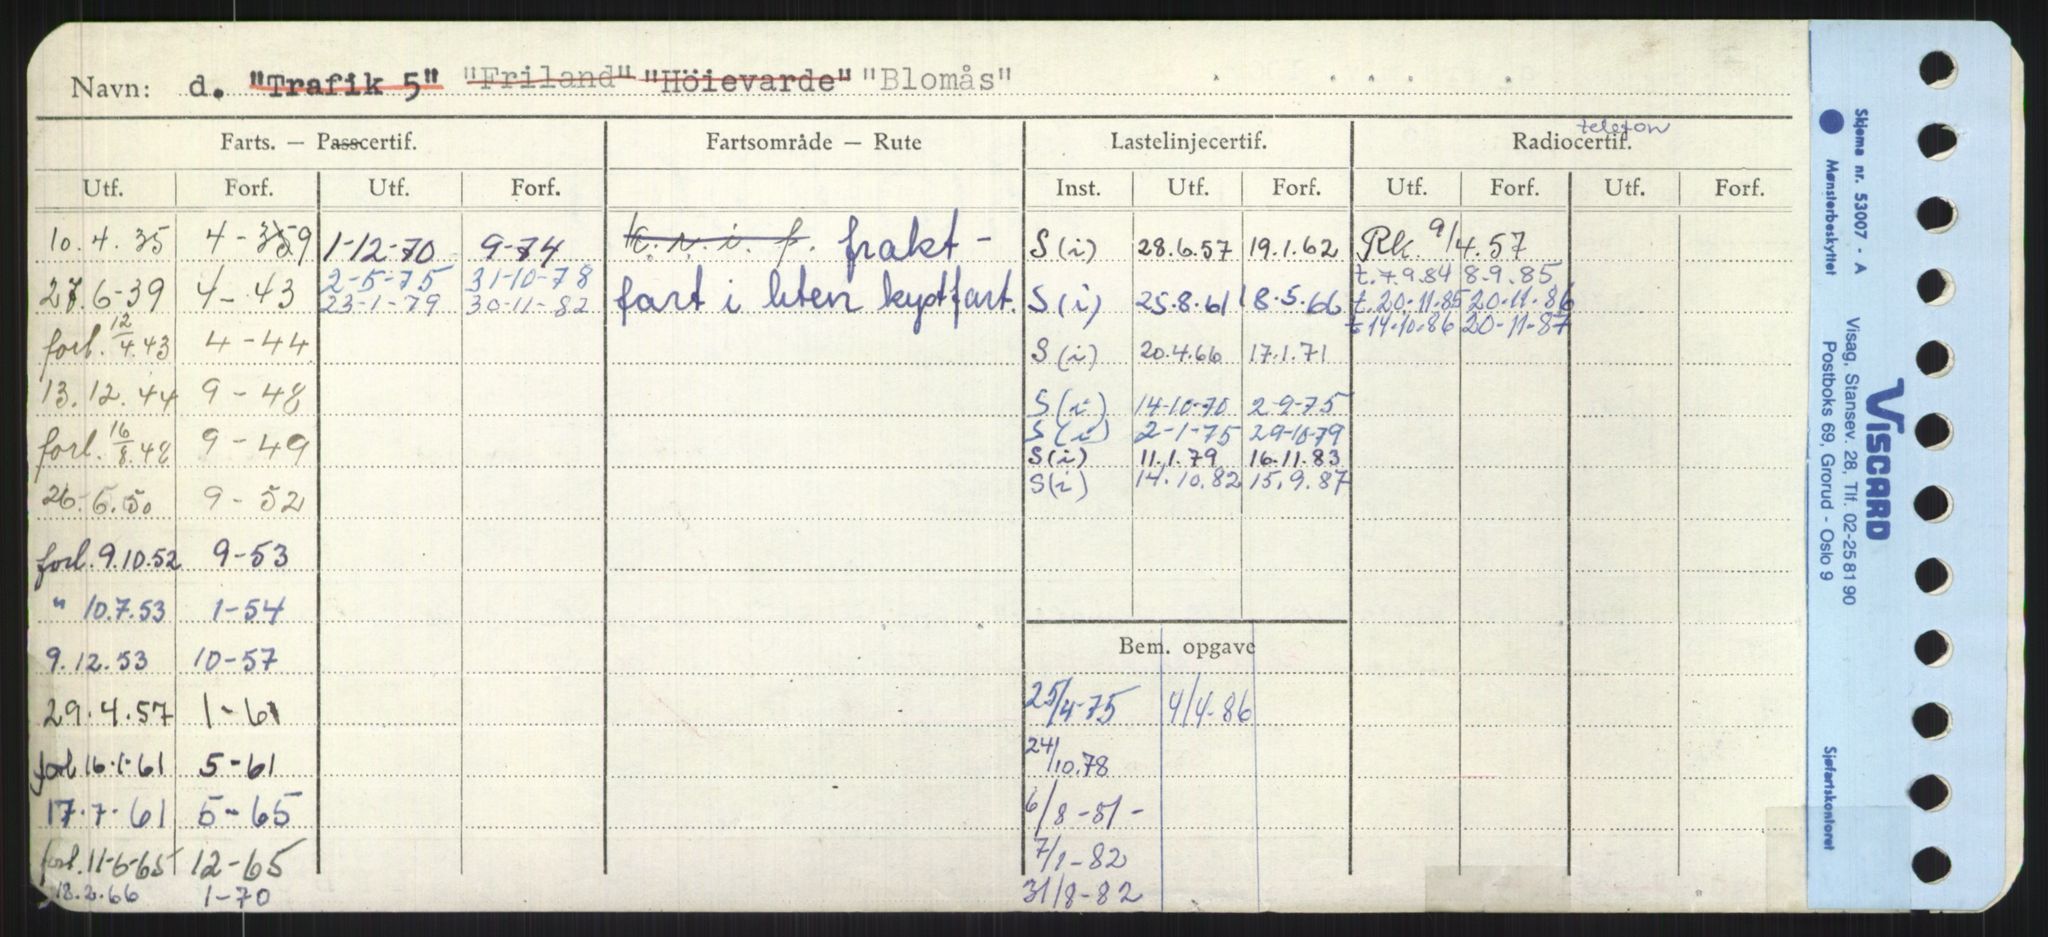 Navn: d. "Trafik 5" "Friland" "Höievarde" "Blomås"
Farts. — Passcertif. Fartsområde — Rute Lastelinjecertif. Radiocertif. telefon
Utf. Forf. Utf. Forf. Inst. Utf. Forf. Utf. Forf. Utf. Forf.
10.4.35 4-359 1-12-70 9-74 K.n.i.f. frakt- S(i) 28.6.57 19.1.62 Rk. 9/4.57
2-5-75 31-10-78 t.7.9.84 8-9.85
27.6-39 4-43 23-1-79 30-11-82 fart i liten kystfart. S(i) 25.8.61 18.5.66 t.20-11.85 20-11-86
t 14-10-86 20-11-87
forl. 12/4.43 4-44 S(i) 20.4.66 17.1.71
13.12.44 9-48 S(i) 14-10-70 2-9-75
forl. 16/8.48 9-49 S(i) 2-1-75 29-10-79
S(i) 11.1.79 16.11.83
26.6.50 9-52 S(i) 14.10.82 15.9.87
forl. 9.10.52 9-53
" 10.7.53 1-54
9.12.53 10-57 Bem. opgave
29.4.57 1-61 25/4-75 4/4-86
forl 16.1-61 5-61 24/10.78
17.7.61 5-65 6/8-81-
forl. 11-6-65 12-65 7/1-82
18.2.66 1-70 31/8-82
Skjema nr. 53007 - A
Mønsterbeskyttet
VISCARD
Visag, Stansev. 28, Tlf. 02-258190
Postboks 69, Grorud - Oslo 9
Sjøfartskontoret